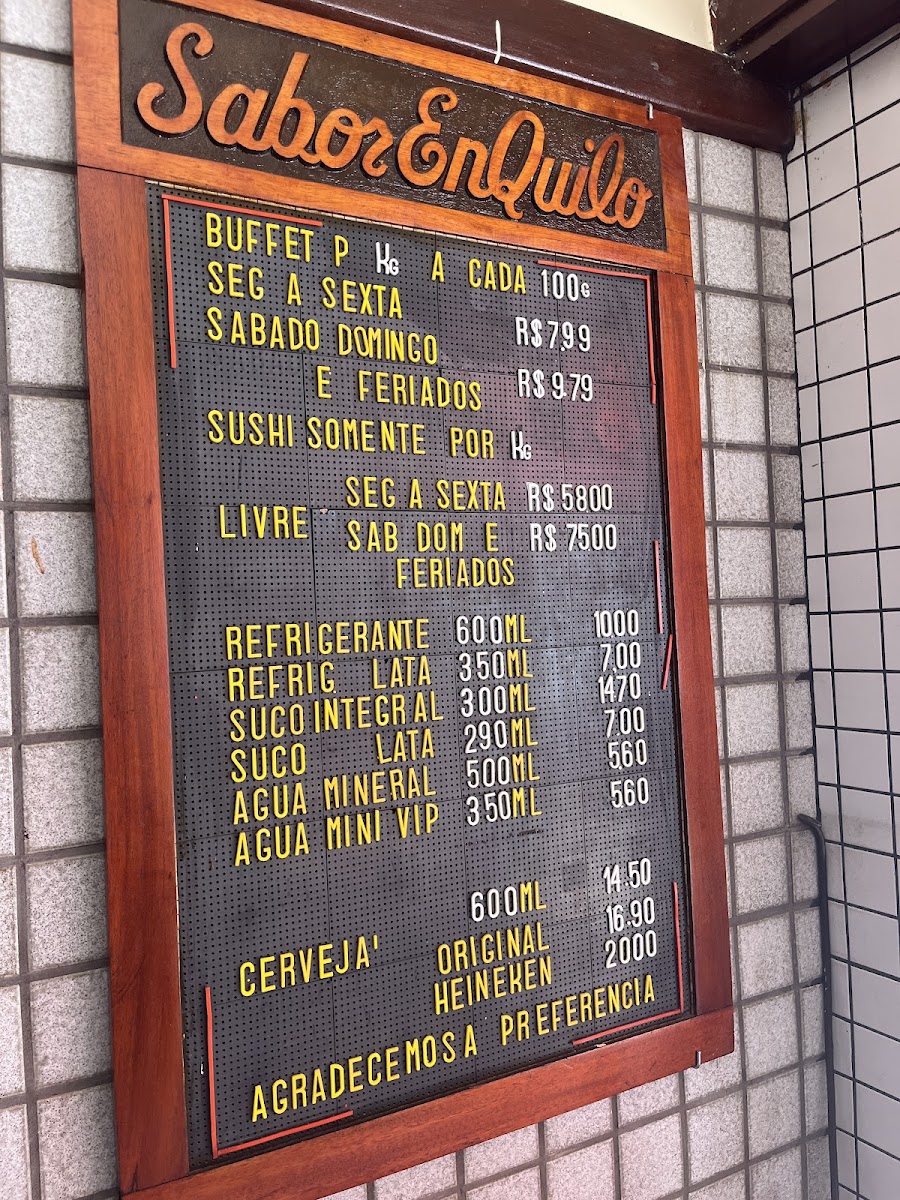 Sabor En Quilo
BUFFET P KG A CADA 100G
SEG A SEXTA R$ 7.99
SABADO DOMINGO
E FERIADOS R$ 9.79
SUSHI SOMENTE POR KG
SEG A SEXTA R$ 5800
LIVRE SAB DOM E R$ 7500
FERIADOS
REFRIGERANTE 600ML 1000
REFRIG LATA 350ML 7.00
SUCO INTEGRAL 300ML 1470
SUCO LATA 290ML 7.00
AGUA MINERAL 500ML 5.60
AGUA MINI VIP 350ML 560
600ML 14.50
CERVEJA' ORIGINAL 16.90
HEINEKEN 2000
AGRADECEMOS A PREFERENCIA